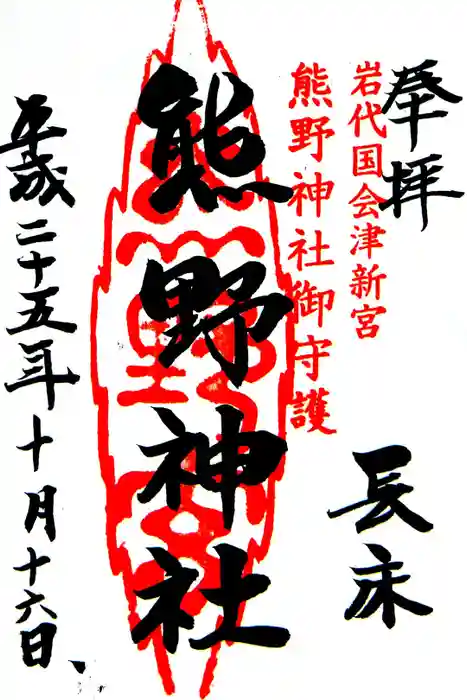 奉拝
岩代国会津新宮
熊野神社御守護
長床
熊野神社
平成二十五年十月十六日